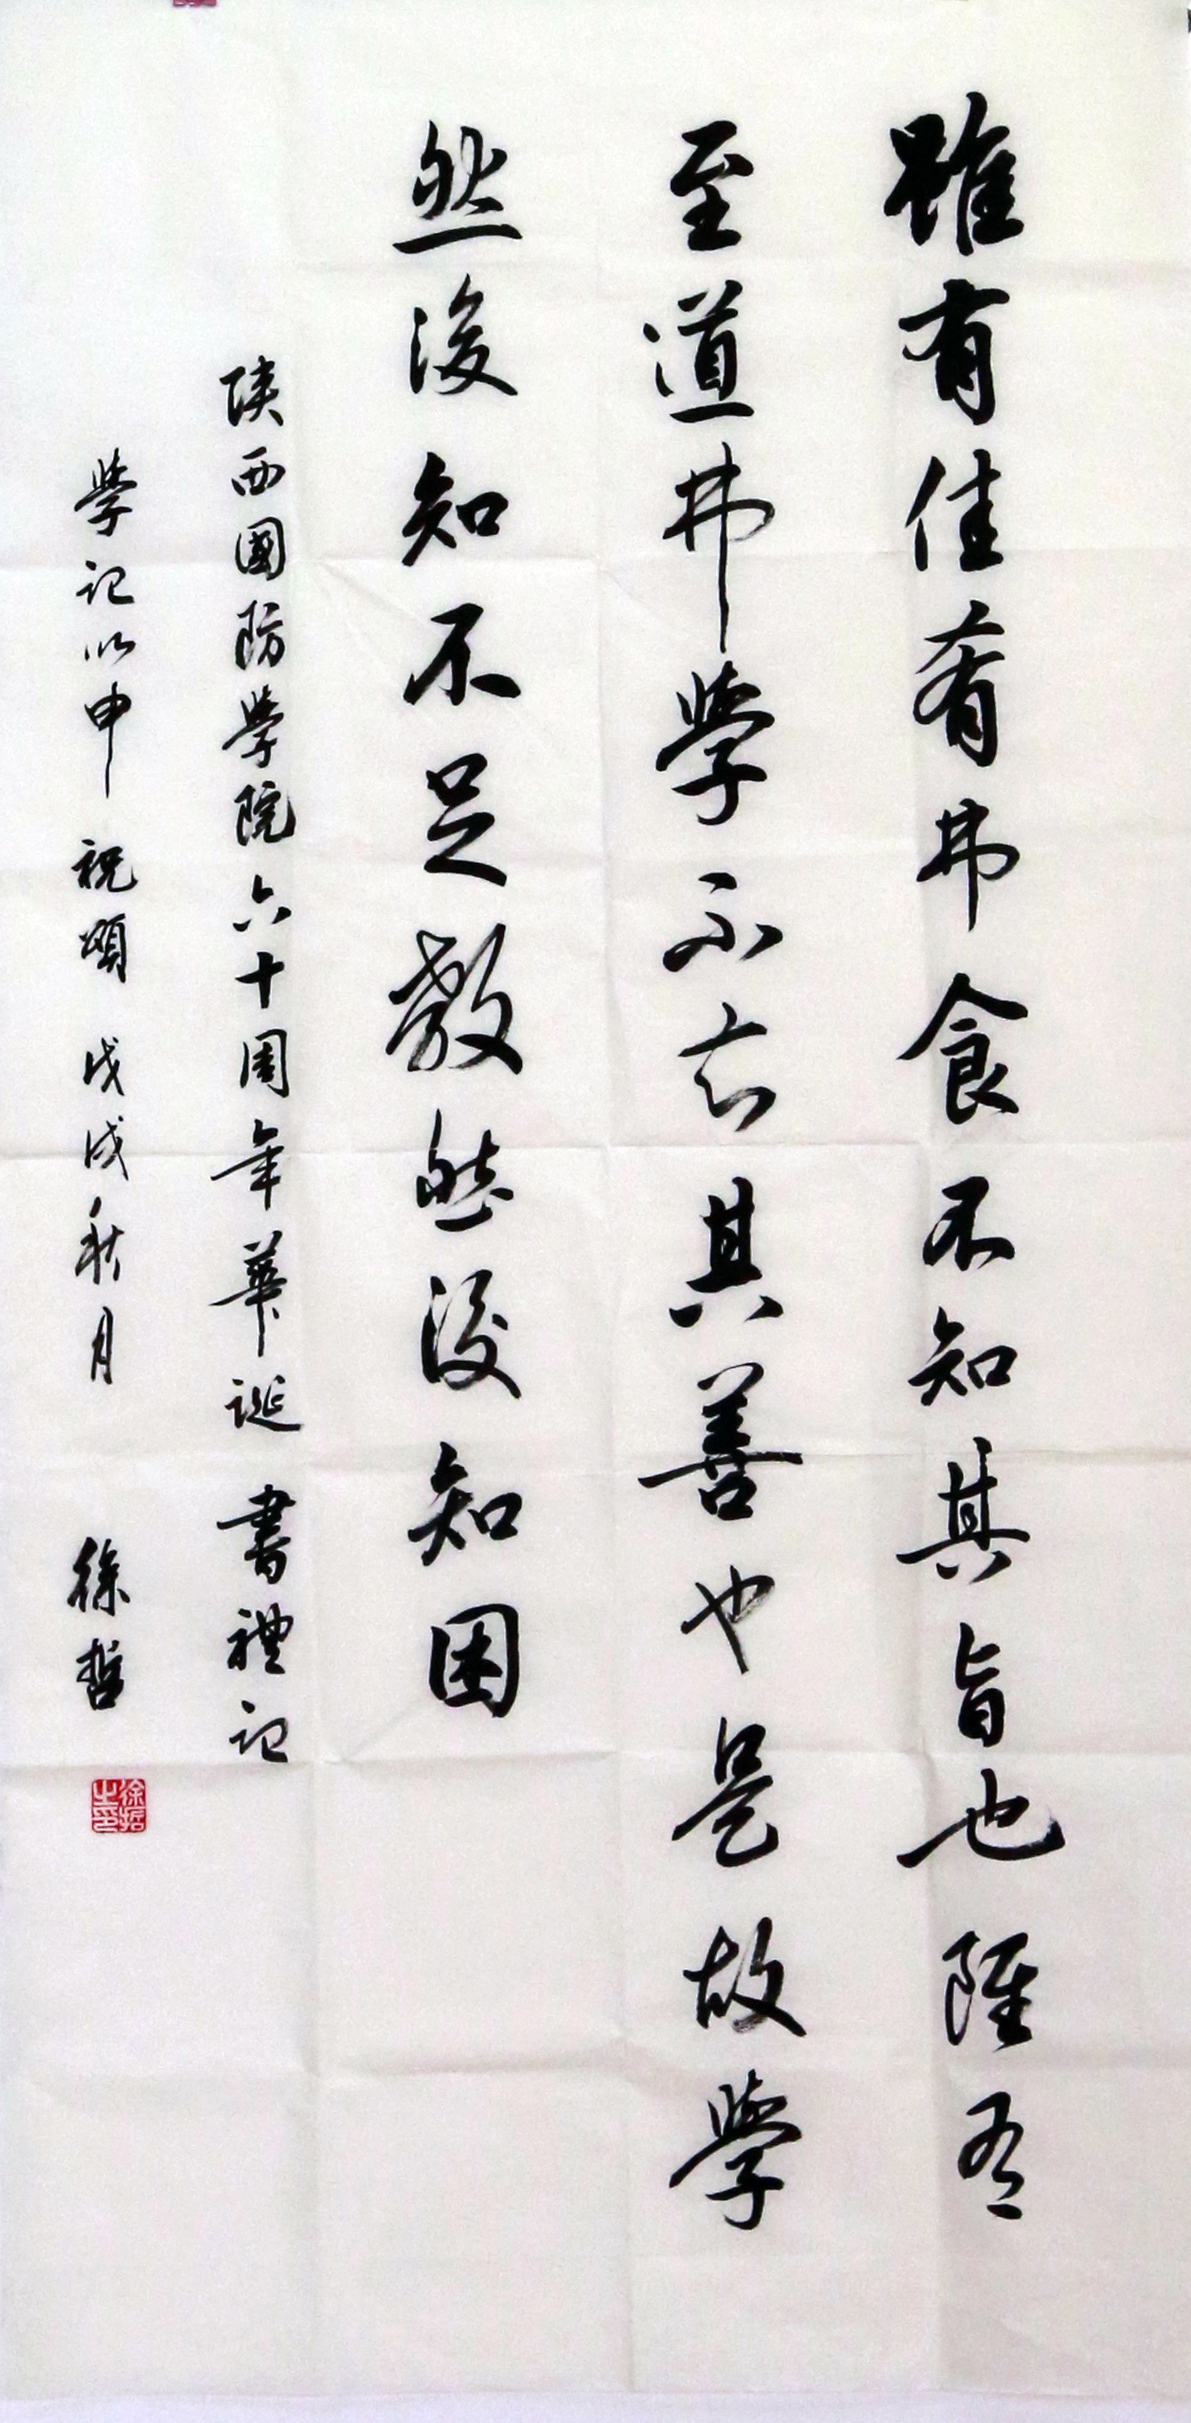 雖有佳肴弗食不知其旨也雖有
至道弗學不知其善也是故學
然後知不足教然後知困
陝西國防學院六十周年華誕書禮記
學記以申祝頌戊戌秋月徐哲
徐哲之印